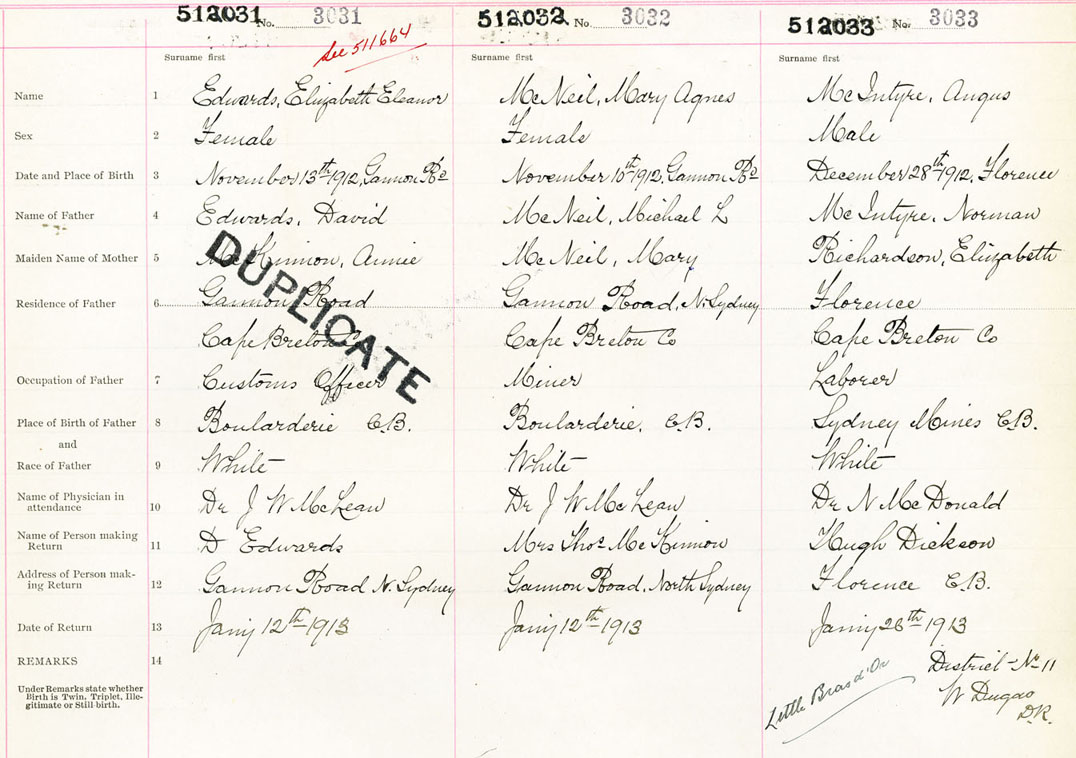 512031 No. 3031 512032 No. 3032 512033 No. 3033
See 511664
Surname first Surname first Surname first
Name 1 Edwards, Elizabeth Eleanor McNeil, Mary Agnes McIntyre, Angus
Sex 2 Female Female Male
Date and Place of Birth 3 November 13th 1912, Gannon Rd November 10th 1912, Gannon Rd December 28th 1912, Florence
Name of Father 4 Edwards, David McNeil, Michael L McIntyre, Norman
Maiden Name of Mother 5 McKinnon, Annie McNeil, Mary Richardson, Elizabeth
DUPLICATE
Residence of Father 6 Gannon Road Gannon Road, N. Sydney Florence
Cape Breton Co Cape Breton Co Cape Breton Co
Occupation of Father 7 Customs Officer Miner Laborer
Place of Birth of Father 8 Boularderie C.B. Boularderie, C.B. Sydney Mines C.B.
and
Race of Father 9 White White White
Name of Physician in
attendance 10 Dr J W McLean Dr J W McLean Dr N McDonald
Name of Person making
Return 11 D Edwards Mrs Thos McKinnon Hugh Dickson
Address of Person mak-
ing Return 12 Gannon Road N. Sydney Gannon Road, North Sydney Florence C.B.
Date of Return 13 Jany 12th 1913 Jany 12th 1913 Jany 28th 1913
REMARKS 14 Little Bras d'Or District No 11
Under Remarks state whether
Birth is Twin, Triplet, Ille-
gitimate or Still-birth.
W
D.R.